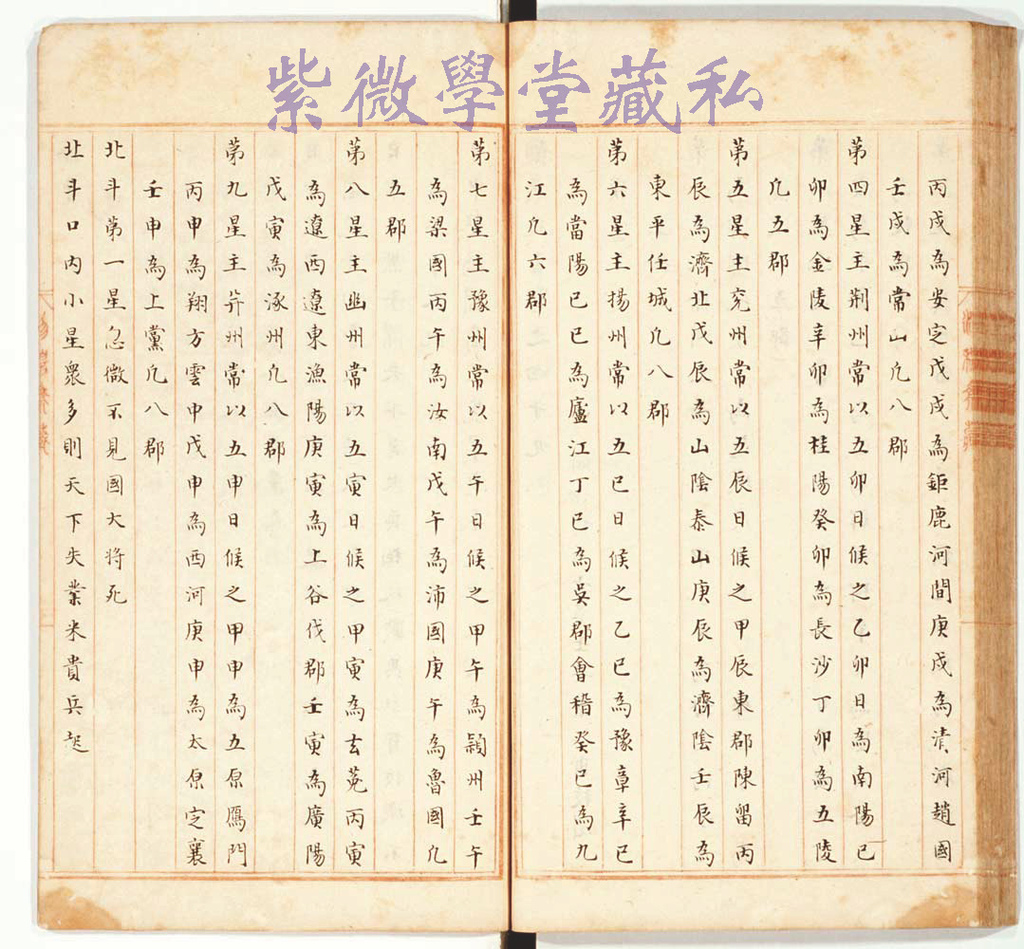 紫微學堂藏私
丙戌為安定戊戌為鉅鹿河間庚戌為清河趙國
壬戌為常山凢八郡
第四星主荆州常以五卯日候之乙卯日為南陽已
卯為金陵辛卯為桂陽癸卯為長沙丁卯為五陵
凢五郡
第五星主兖州常以五辰日候之甲辰東郡陳留丙
辰為濟北戊辰為山陰泰山庚辰為濟陰壬辰為
東平任城凢八郡
第六星主揚州常以五巳日候之乙巳為豫章辛巳
為當陽已巳為廬江丁巳為吳郡會稽癸巳為九
江凢六郡
第七星主豫州常以五午日候之甲午為潁州壬午
為梁國丙午為汝南戊午為沛國庚午為魯國凢
五郡
第八星主幽州常以五寅日候之甲寅為玄菟丙寅
為遼西遼東漁陽庚寅為上谷伐郡壬寅為廣陽
戊寅為涿州凢八郡
第九星主并州常以五申日候之甲申為五原鴈門
丙申為翔方雲中戊申為西河庚申為太原定襄
壬申為上黨凢八郡
北斗第一星忽微不見國大將死
北斗口內小星衆多則天下失業米貴兵起